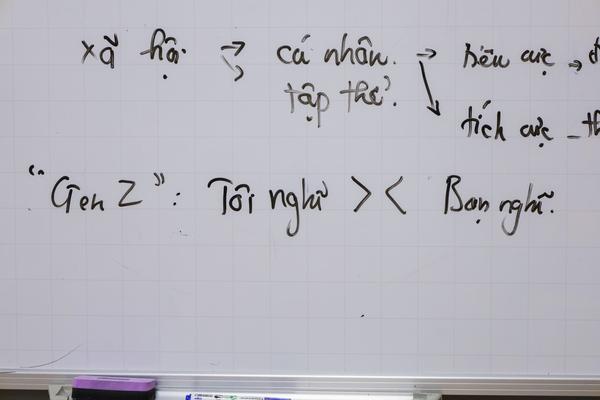 xã hội → cá nhân. → tiêu cực → đ
tập thể. tích cực - th
"Gen Z": Tôi nghĩ >< Bạn nghĩ.